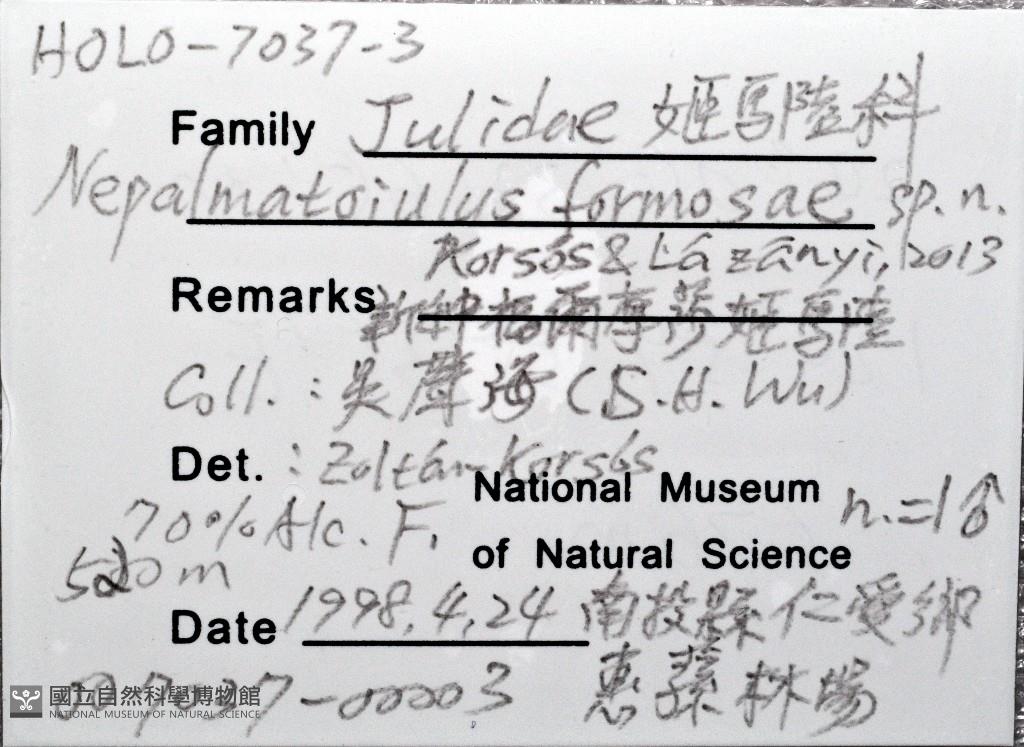 HOLO-7037-3
Family Julidae 姬馬陸科
Nepalmatoiulus formosae sp. n.
Korsós & Lázányi, 2013
Remarks 新種福爾摩莎姬馬陸
Coll. : 吳聲海 (S. H. Wu)
Det. : Zoltán Korsós
National Museum
70% Alc. F. n.=1♂
of Natural Science
m
Date 1998.4.24 南投縣仁愛鄉
7037-00003 惠蓀林場
國立自然科學博物館
NATIONAL MUSEUM OF NATURAL SCIENCE